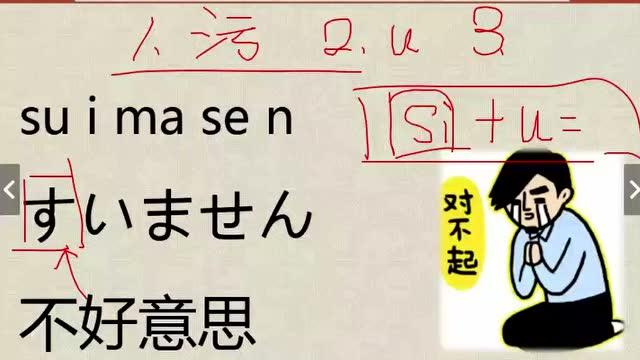 1. 污 2. u 3.
su i ma se n
si + u =
すいません
对不起
不好意思